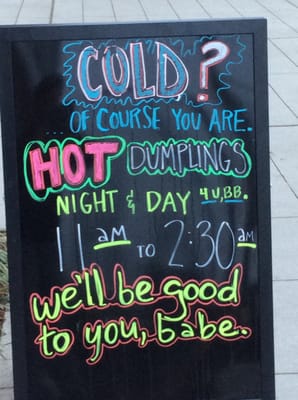 COLD?
...OF COURSE YOU ARE.
HOT DUMPLINGS
NIGHT & DAY 4 U, BB.
11 am TO 2:30 am
we'll be good
to you, babe.